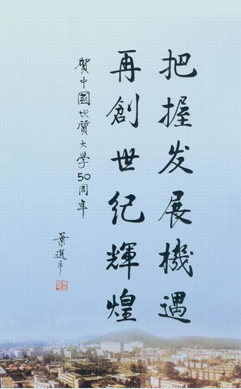 把握发展機遇
再創世纪輝煌
賀中國地質大学50周年
葉選平